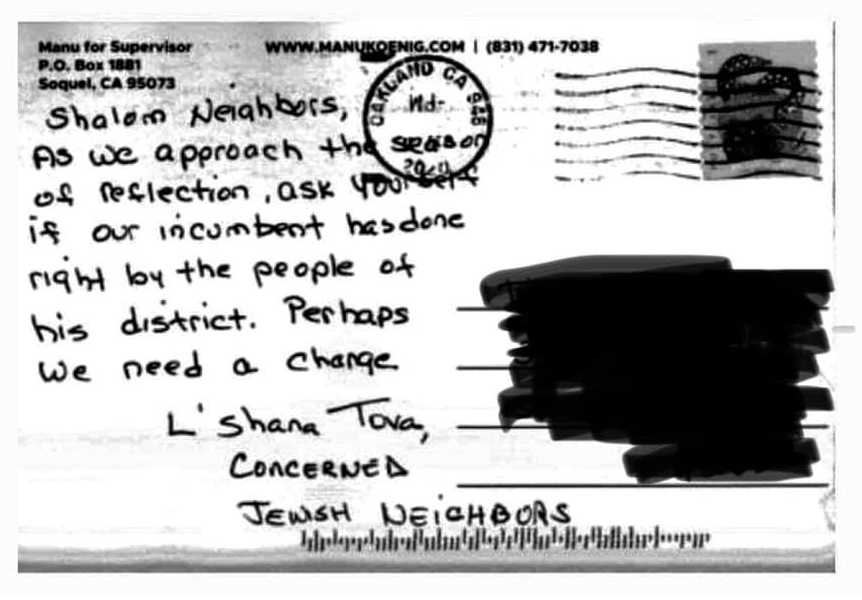 Manu for Supervisor
P.O. Box 1881
Soquel, CA 95073
WWW.MANUKOENIG.COM | (831) 471-7038
OAKLAND CA 946
Shalom Neighbors,
As we approach the season
of reflection, ask yourself
if our incumbent has done
right by the people of
his district. Perhaps
we need a change
L'shana Tova,
CONCERNED
JEWSH NEiGHBORS